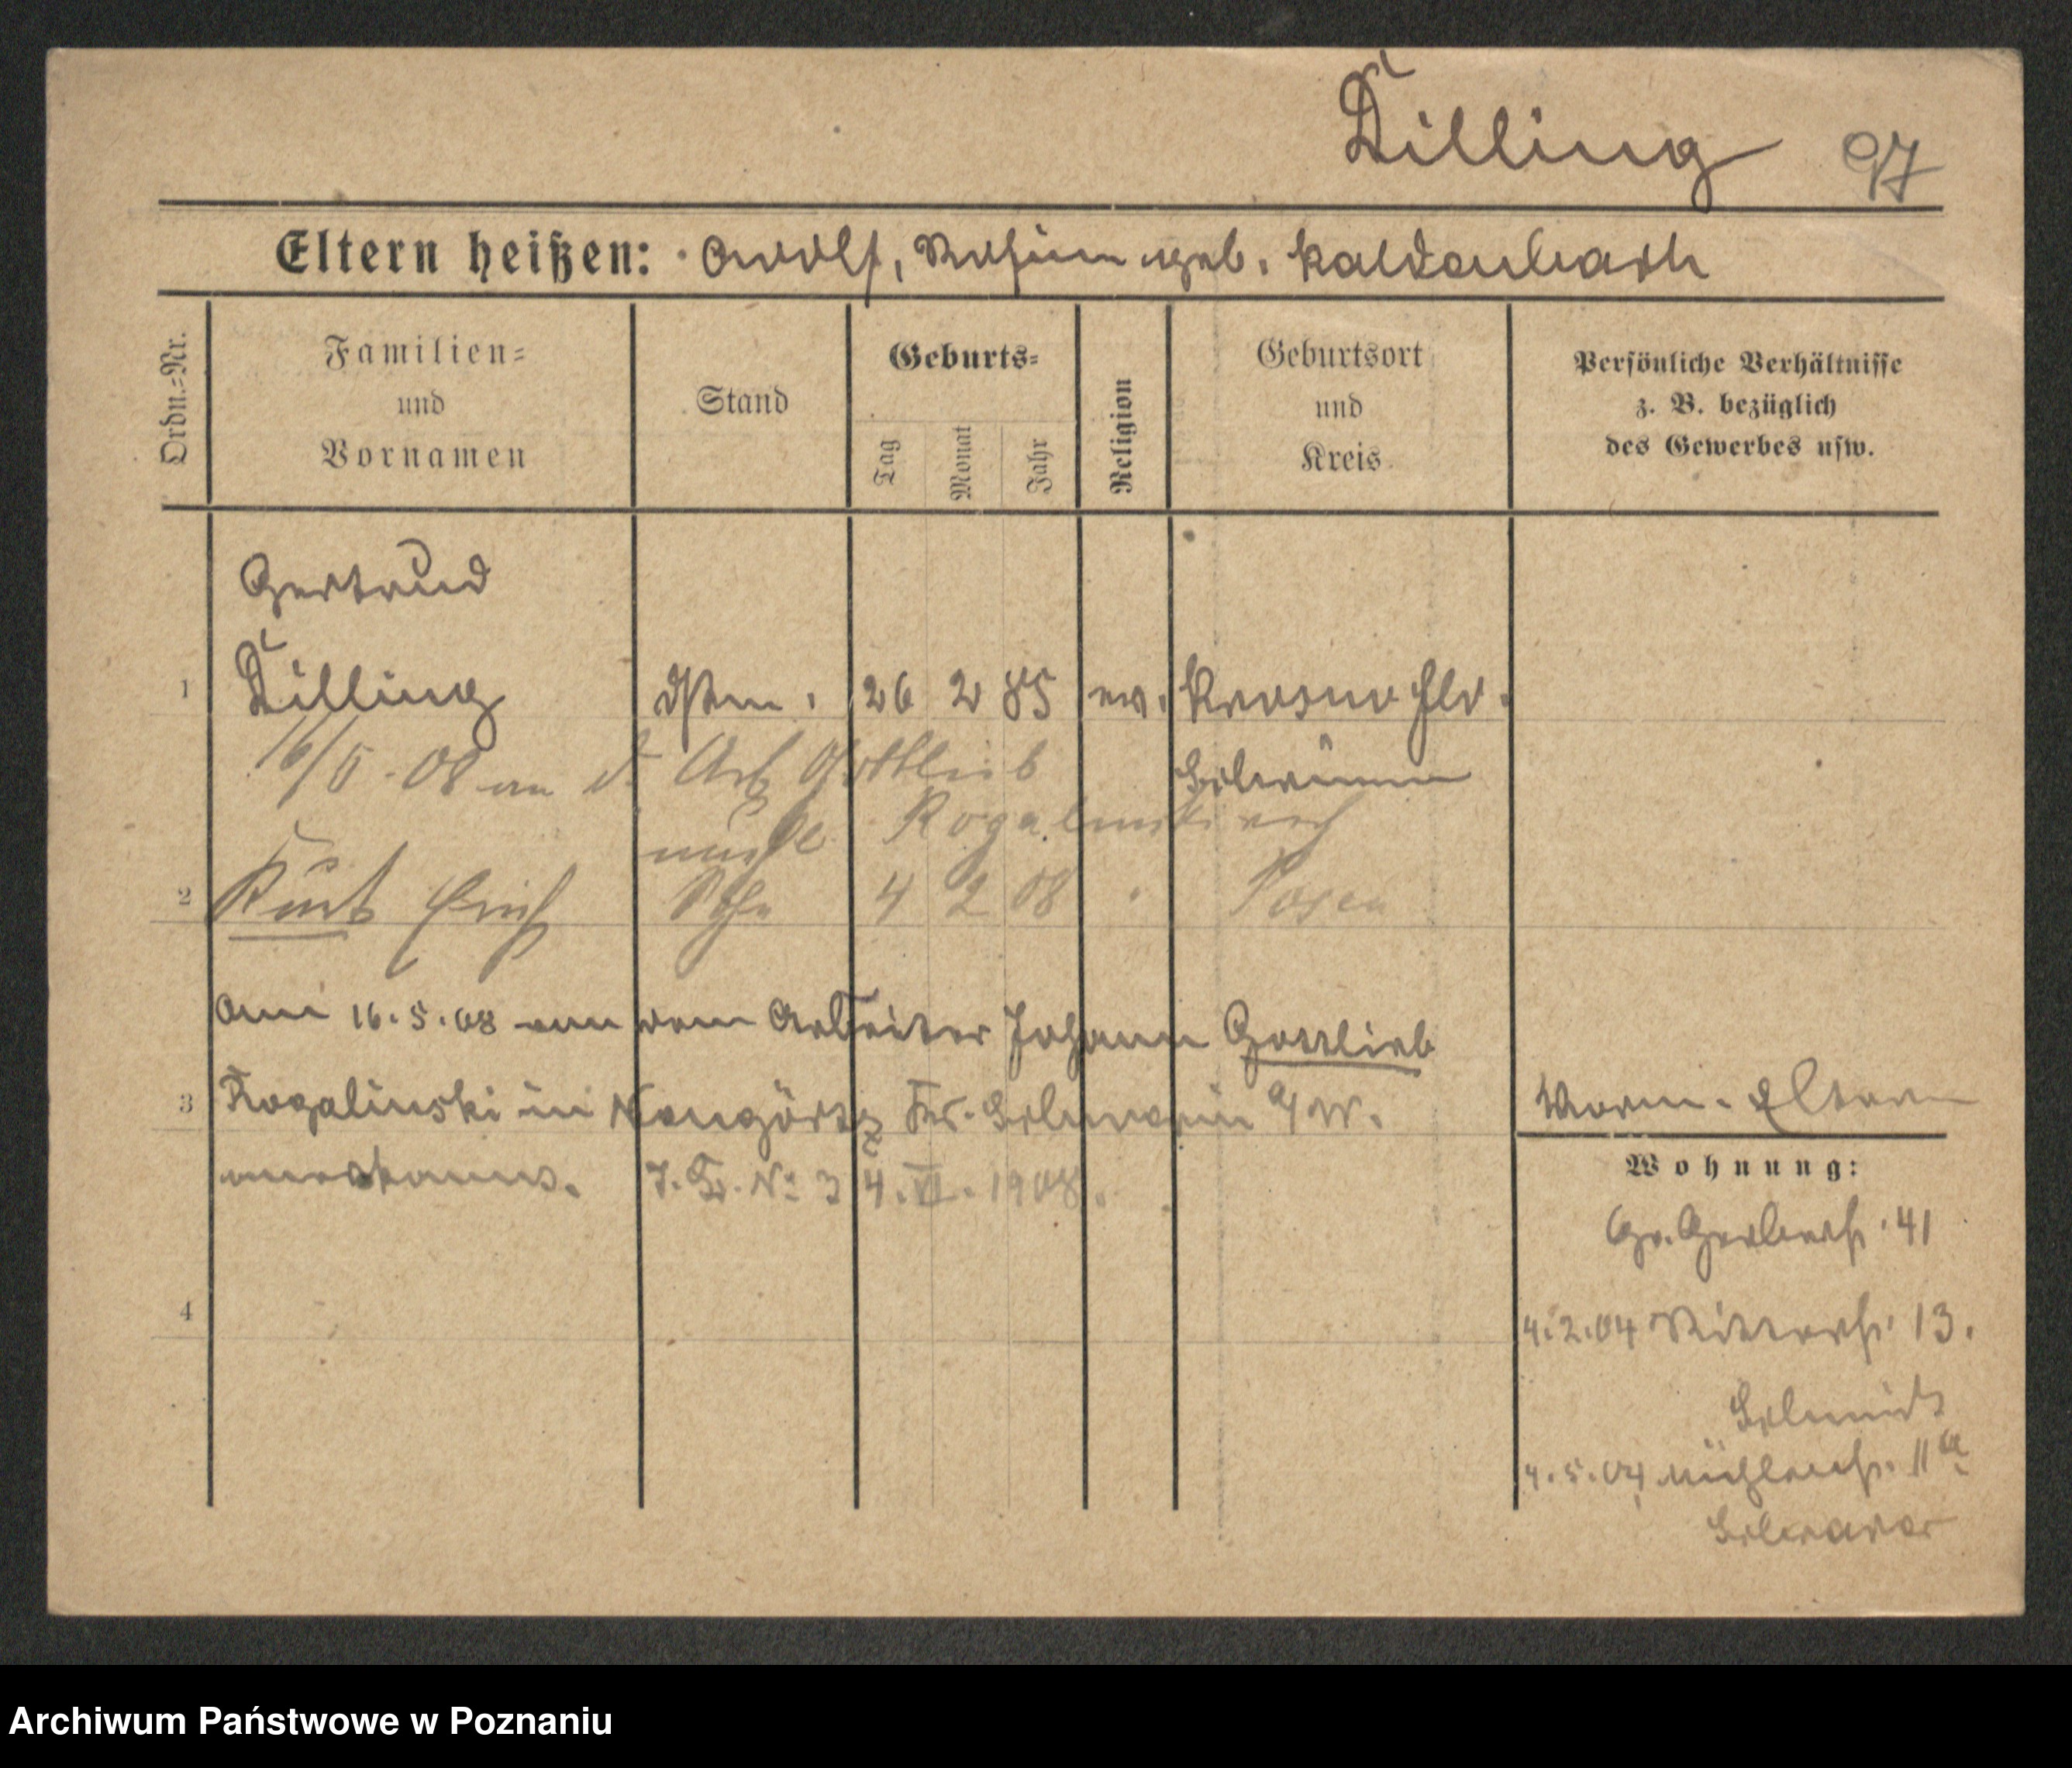 Dilling 97
Eltern heißen: Adolf, Rosina geb. Kaldenbach
Ordn.=Nr.
Familien=
und
Vornamen
Stand
Geburts=
Tag
Monat
Jahr
Religion
Geburtsort
und
Kreis
Persönliche Verhältnisse
z. B. bezüglich
des Gewerbes usw.
Gertrud
1 Dilling 26 2 85 ev. Krosno
16/5. 08 an d. Arb Gottlieb
Schrimm
Rogalinski
2 Kurt Erich Sohn 4 2 08 Posen
Am 16.5.08 an den Arbeiter Johann Gottlieb
3 Rogalinski in
7. No 3 4.VI.1908.
4
Eltern
Wohnung:
Gr. Gerberstr. 41
4.2.04 Ritterstr. 13.
Schmidt
4.5.04 Mühlenstr. 11a
Archiwum Państwowe w Poznaniu